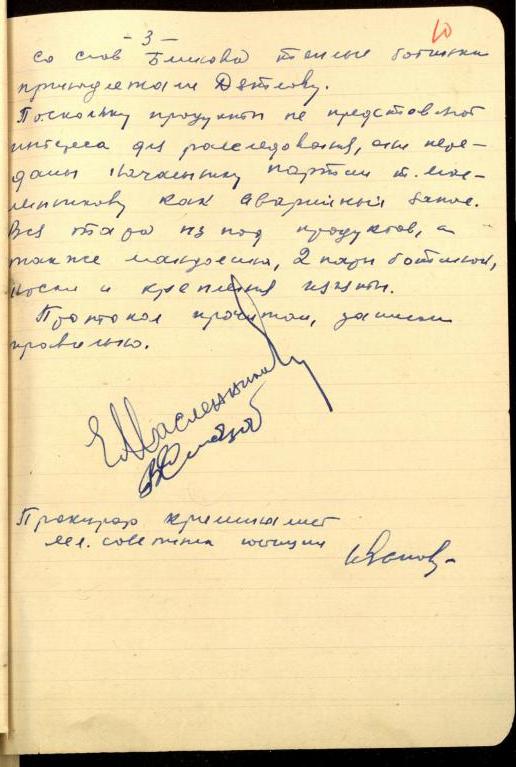 - 3 -
10
со слов Блинова теплые ботинки
принадлежали Дятлову.
Поскольку продукты не представляют
интереса для расследования, они пере-
даны начальнику партии т. Мас-
ленникову как аварийный запас.
Вся тара из под продуктов, а
также мандолина, 2 пары ботинок,
носки и крепления изъяты.
Протокол прочитан, записан
правильно.
Е Масленников
Прокурор криминалист
мл. советник юстиции
Иванов